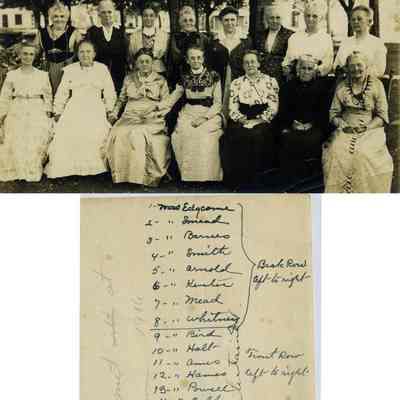 1- Mrs Edgcome
2- " Snead
3- " Barnes
4- " Smith
5- " Arnold
6- "
7- " Mead
8- " Whitney
Back Row
left to right
9- " Bird
10- " Holt
11- " Ames
12- " Hames
13- " Powell
Front Row
left to right